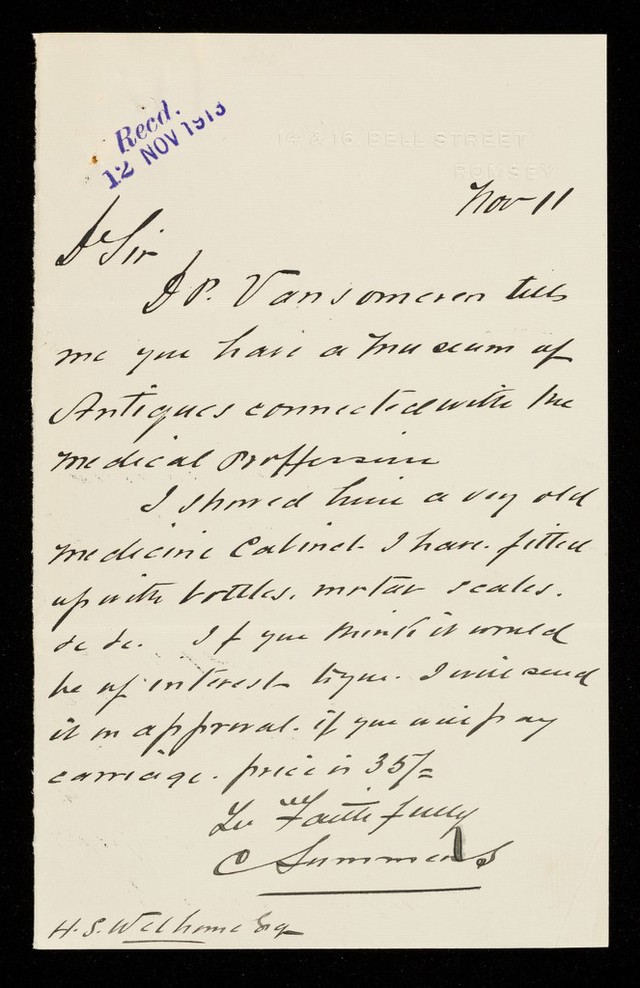 Recd.
12 NOV 1913
14 & 16 BELL STREET
ROMSEY
Nov 11
Dr Sir
Dr P. Vansomeren tells
me you have a Museum of
Antiques connected with the
Medical Proffession
I showed him a very old
Medicine Cabinet I have. fitted
up with bottles. mortar scales.
&c &c. If you think it would
be of interest to you. I will send
it on approval. if you will pay
carriage. price is 35/=
Yrs Faithfully
C Summers
H. S. Wellcome Esq